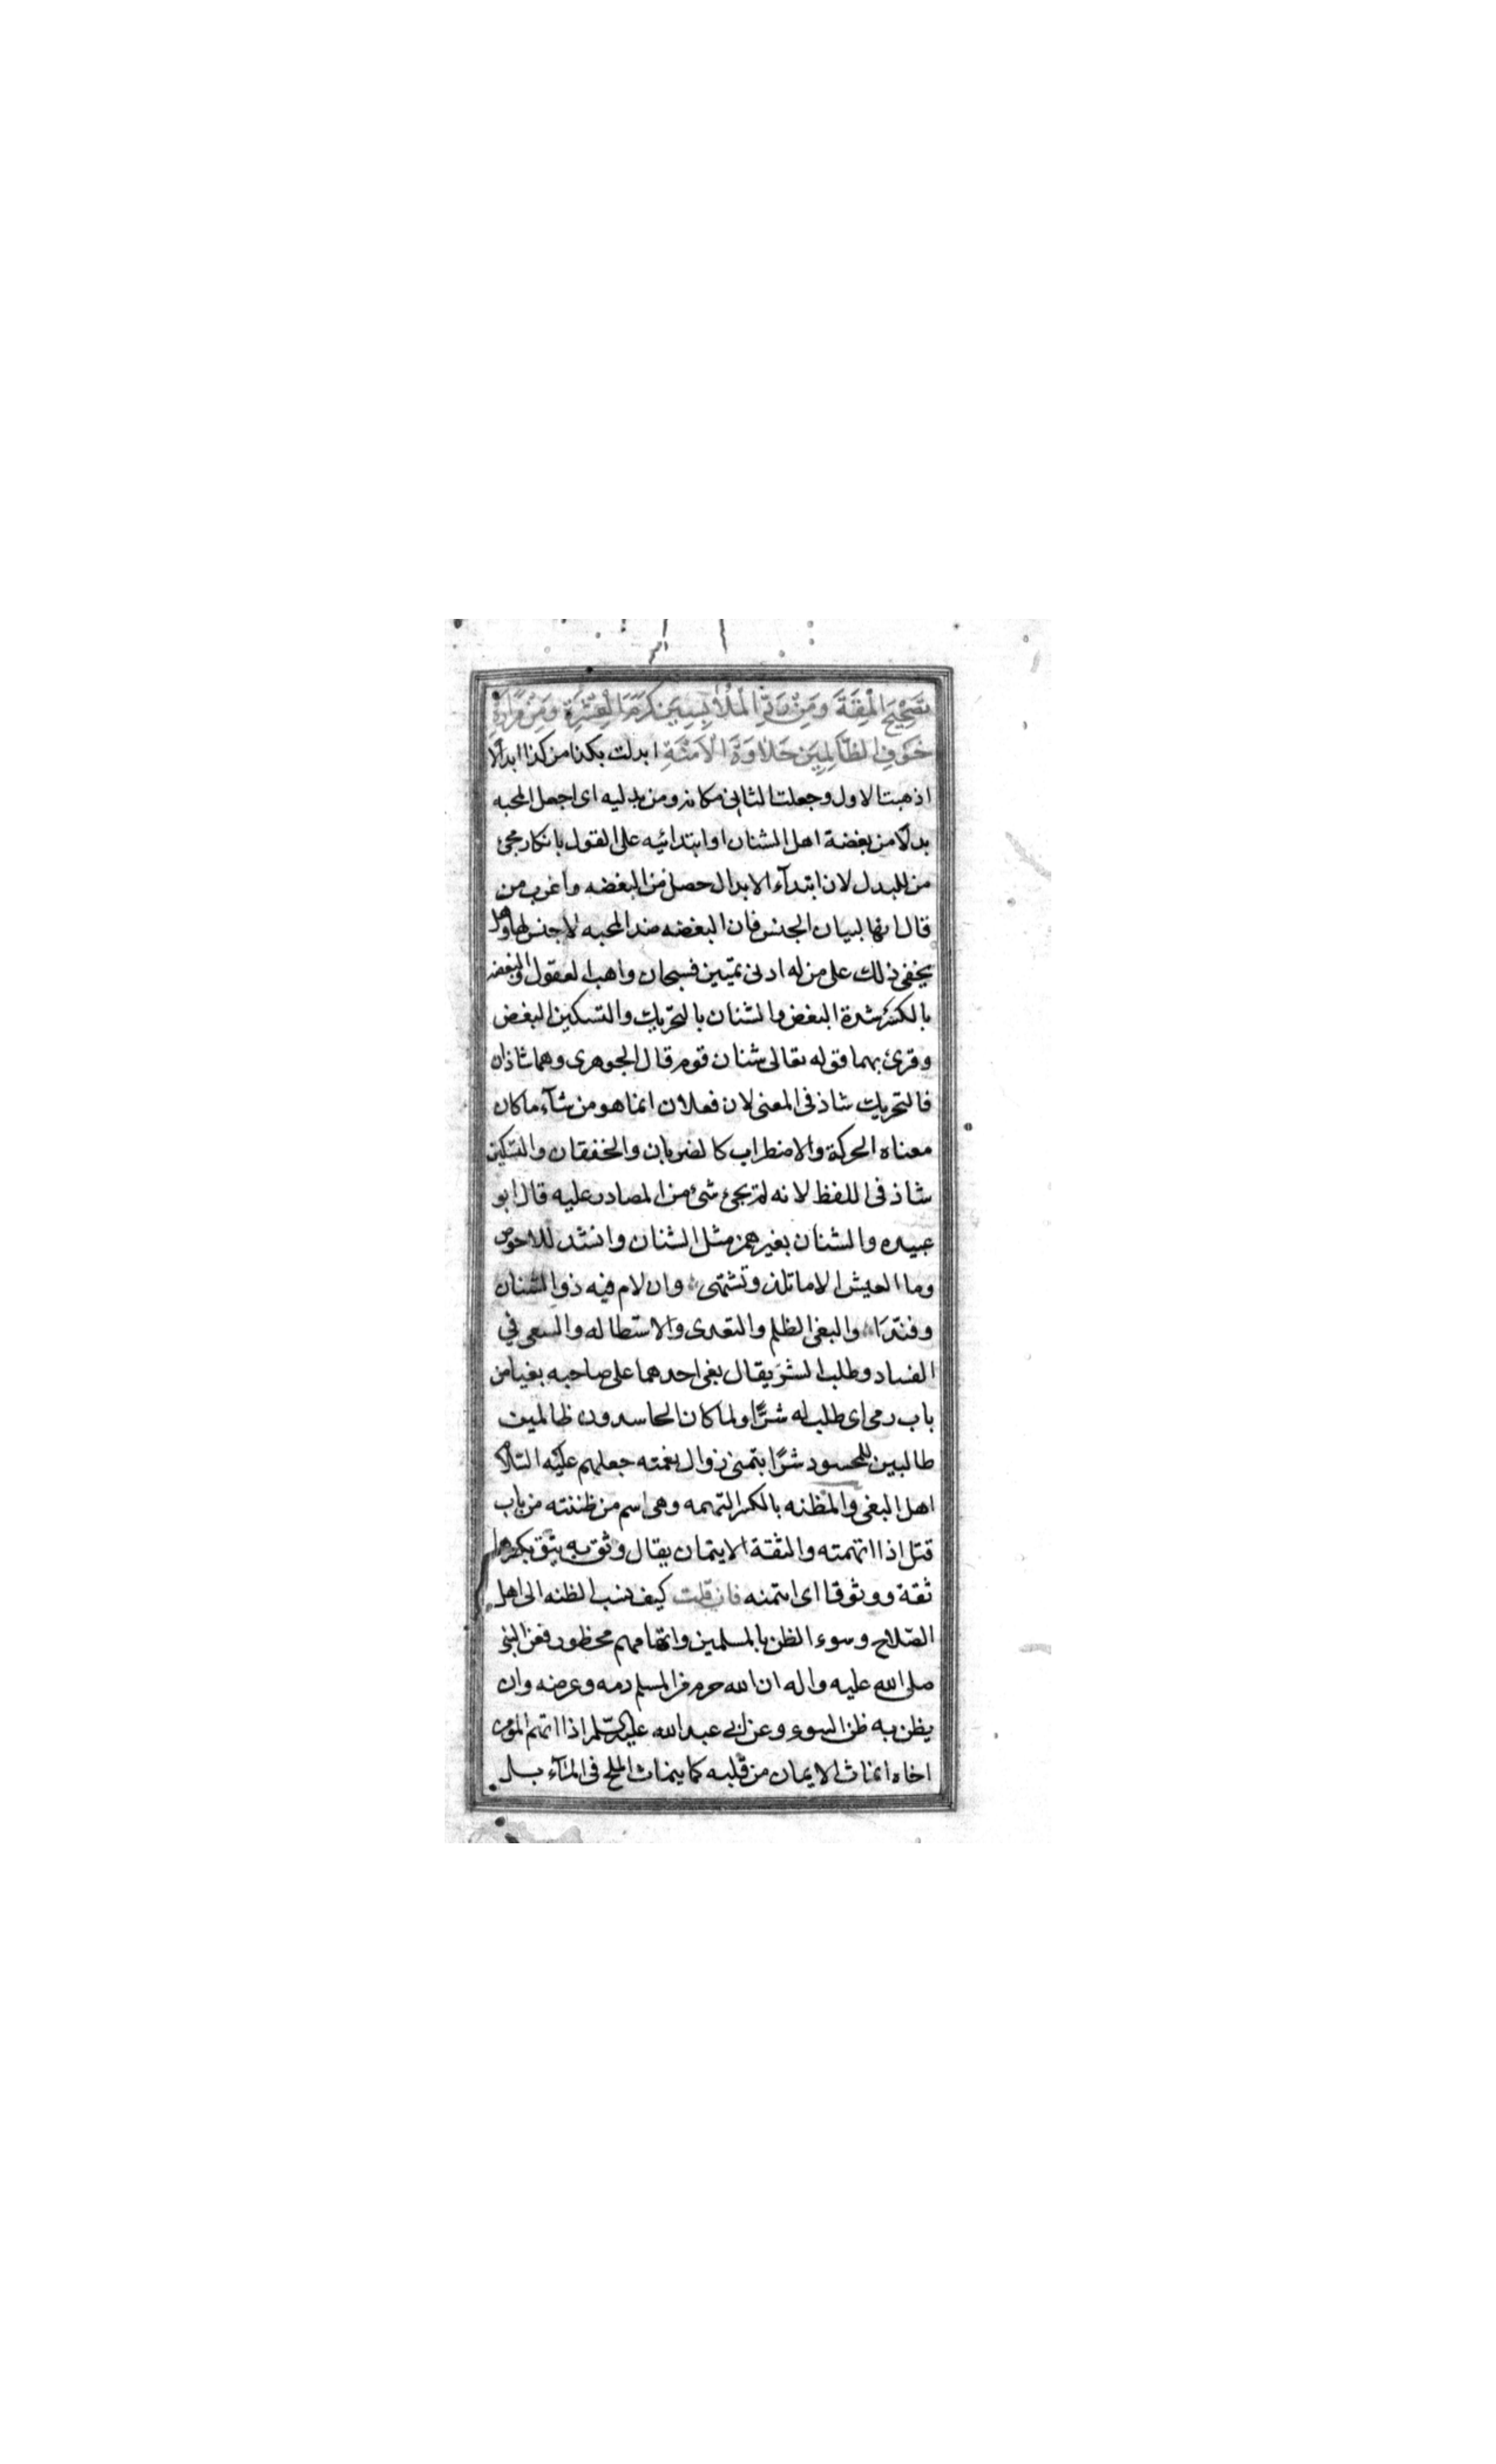 تَصْحِيحَ الْمِقَةِ وَمِنْ رَدِّ الْمُلَابِسِينَ كَرَمَ الْعِشْرَةِ وَمِنْ مَرَارَةِ
خَوْفِ الظَّالِمِينَ حَلَاوَةَ الْاَمَنَةِ ابدلت بكذا من كذا ابدالا
اذهبت الاول وجعلت الثانى مكانه ومن بدليه اى اجعل المحبه
بدلًا من بغضة اهل الشنان او ابتدائيه على القول بانكار مجئ
من للبدل لان ابتدآء الابدال حصل من البغضه واغرب من
قال انها لبيان الجنس فان البغضه ضد المحبه لا جنس لها وهل
يخفى ذلك على من له ادنى تميز فسبحان واهب العقول والبغضه
بالكسر شدة البغض والشنان بالتحريك والتسكين البغض
وقرئ بهما قوله تعالى شنان قوم قال الجوهرى وهما شاذان
فالتحريك شاذ فى المعنى لان فعلان انما هو من بنآء ما كان
معناه الحركة والاضطراب كالضربان والخفقان والتسكين
شاذ فى اللفظ لانه لم يجئ شئ من المصادر عليه قال ابو
عبيده والشنان بغير همز مثل الشنان وانشد للاحوص
وما العيش الا ما تلذ وتشتهى وان لام فيه ذو الشنان
وفنّدا والبغى الظلم والتعدى والاستطاله والسعى في
الفساد وطلب الشر يقال بغى احدهما على صاحبه بغيا من
باب رمى اى طلب له شرًا ولما كان الحاسدون ظالمين
طالبين للمحسود شرًا بتمنى زوال نعمته جعلهم عليه السّلام
اهل البغى والمظنه بالكسر التهمه وهى اسم من ظننته من باب
قتل اذا اتهمته والثقة الايتمان يقال وثق به يثق بكسرهما
ثقة ووثوقا اى ايتمنه فان قلت كيف نسب الظنه الى اهل
الصّلاح وسوء الظن بالمسلمين واتهامهم محظور فعن النبى
صلى الله عليه واله ان الله حرم من المسلم دمه وعرضه وان
يظن به ظن السوء وعن ابى عبد الله عليه السّلم اذا اتهم المؤمن
اخاه انماث الايمان من قلبه كما ينماث الملح فى المآء بل